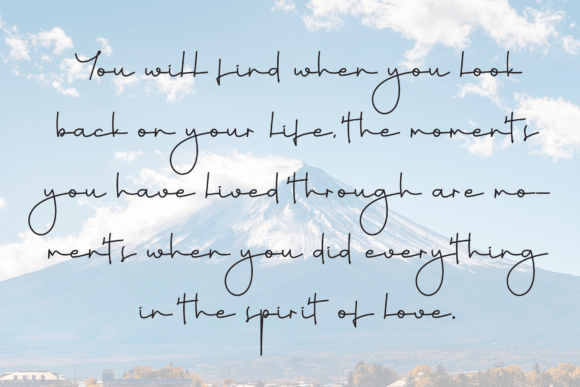 You will find when you look
back on your life, the moments
you have lived through are mo-
ments when you did everything
in the spirit of love.